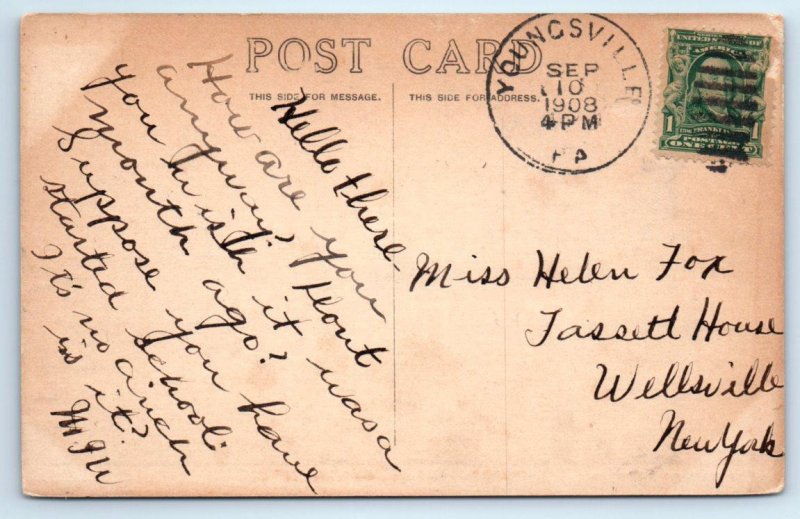 POST CARD
THIS SIDE FOR MESSAGE.
THIS SIDE FOR ADDRESS.
YOUNGSVILLE
SEP
10
1908
4 PM
PA
UNITED STATES
AMERICA
FRANKLIN
1 1
POSTAGE
ONE CENT
Hello there.
How are you
anyway? Dont
you wish it was a
month ago?
Suppose you have
started school.
It's no cinch
is it?
Miss Helen Fox
Fassett House
Wellsville
New York